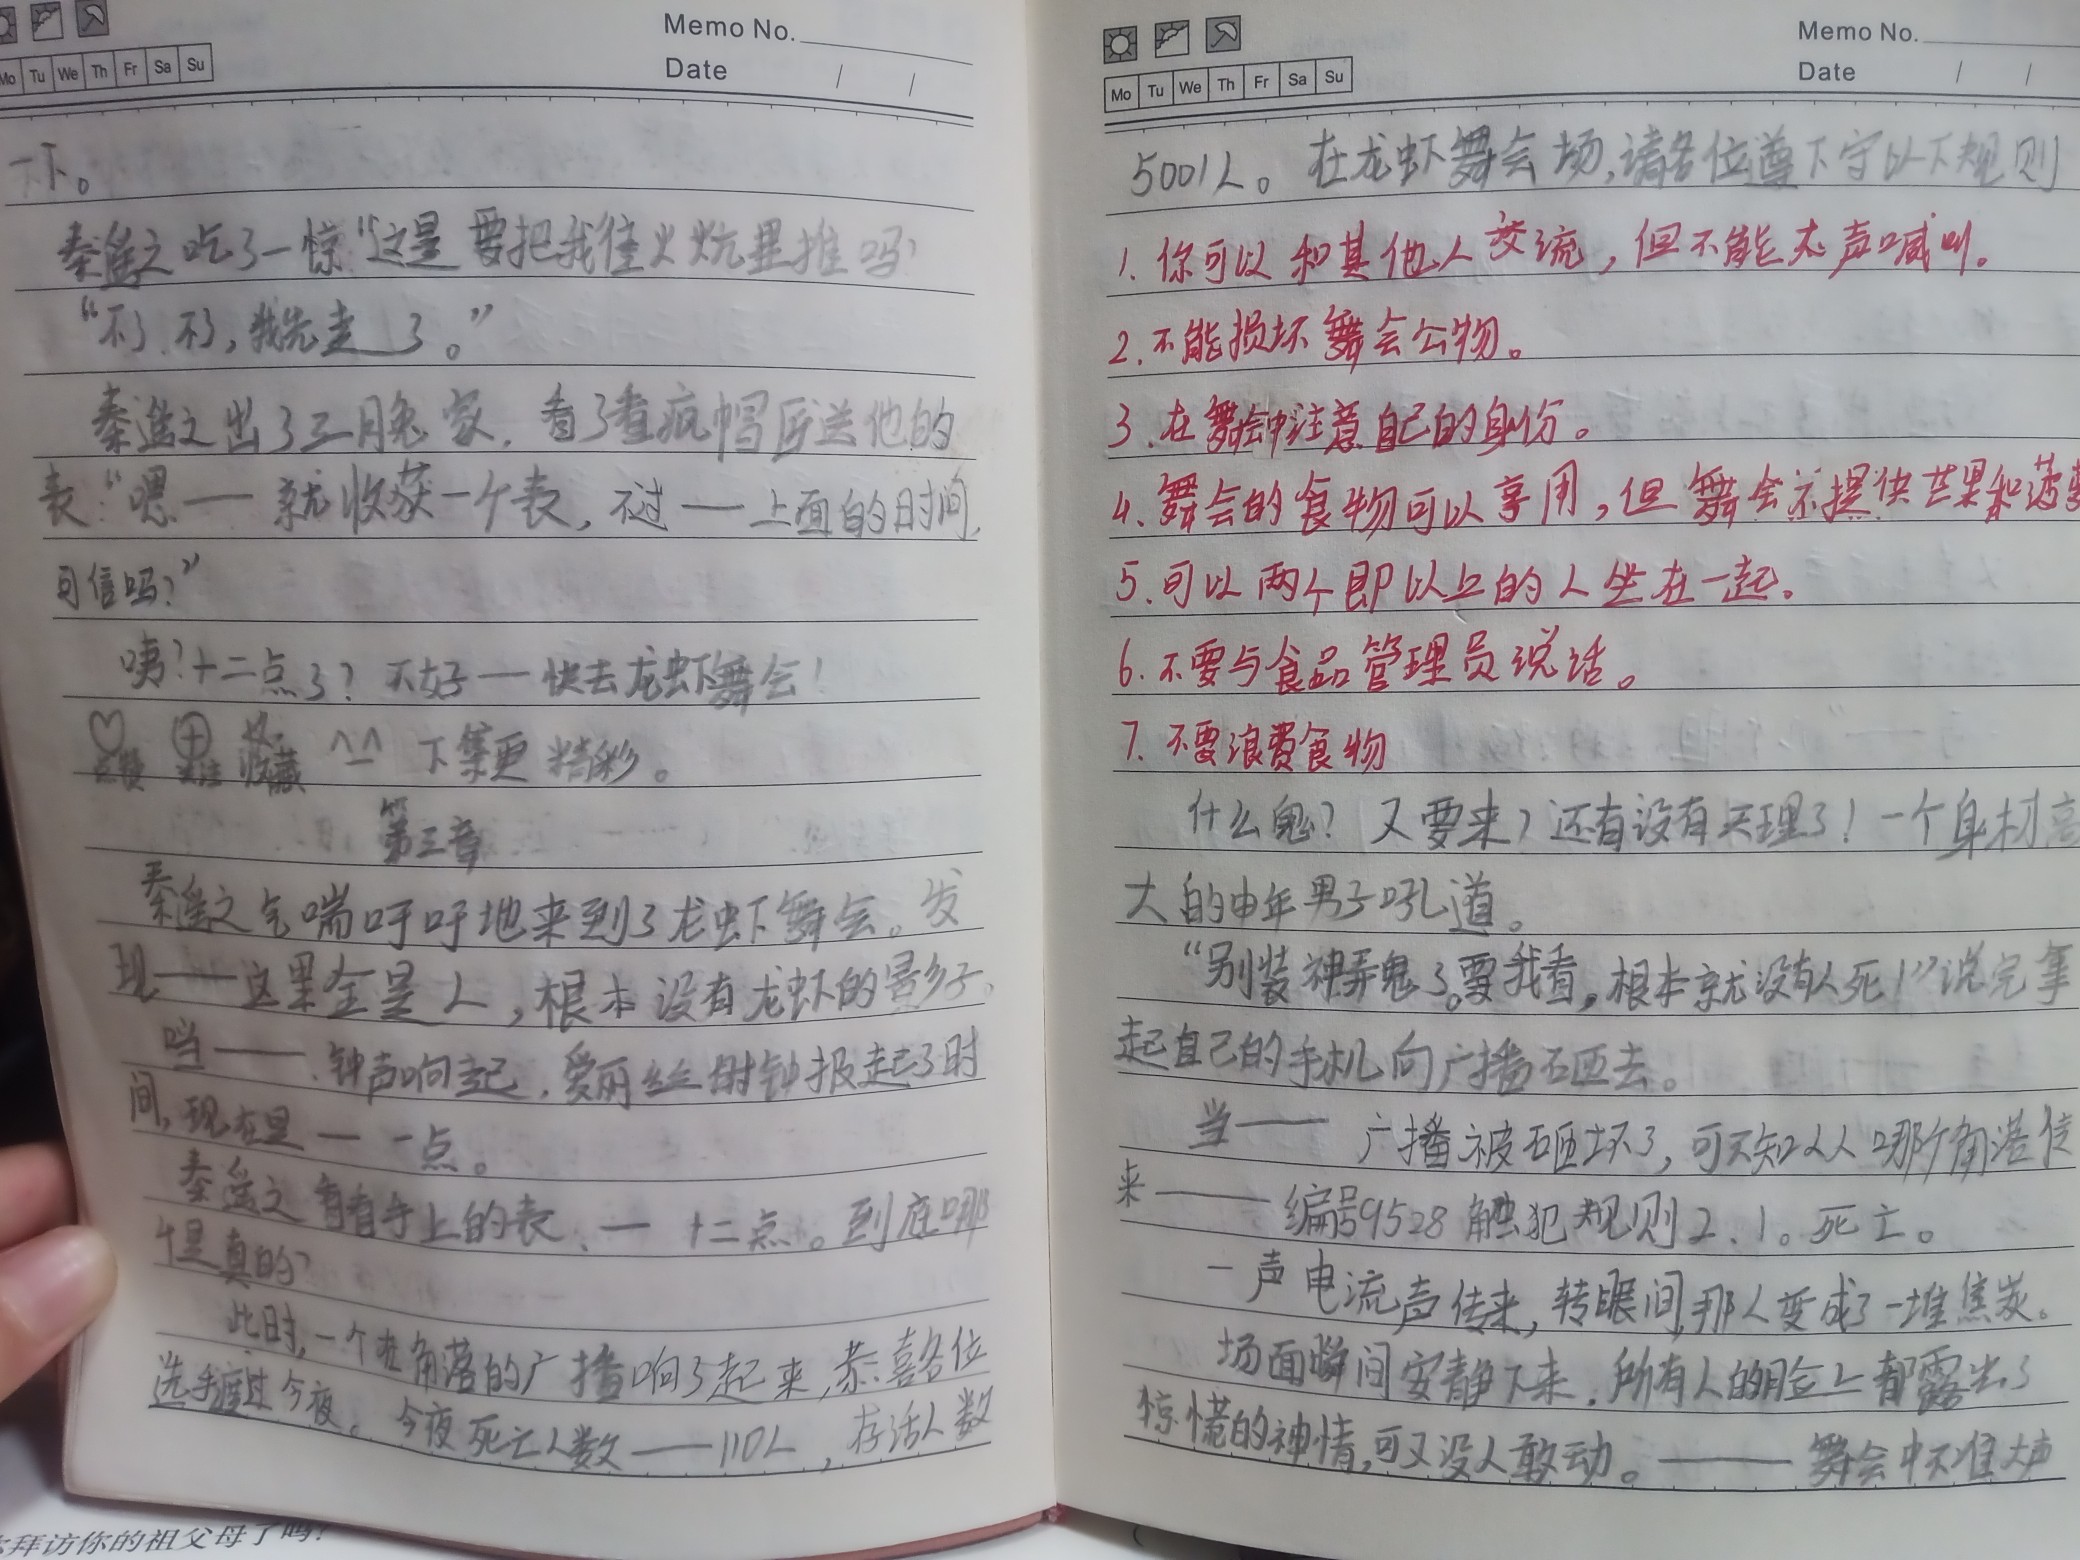 Memo No.
Mo Tu We Th Fr Sa Su
Date / /
一下。
秦遥之吃了一惊“这是要把我往火炕里推吗
“不了不了，我先走了。”
秦遥之出了三月兔家，看了看疯帽匠送他的
表：“嗯——就收获一个表，不过——上面的时间，
可信吗？”
咦？十二点了？不好一快去龙虾舞会！
点赞 关注 收藏 ^_^ 下集更精彩。
第三章
秦遥之气喘吁吁地来到了龙虾舞会。发
现——这里全是人，根本没有龙虾的影子、
当——.钟声响起，爱丽丝时钟报起了时
间，现在是一一点。
秦遥之看看手上的表、一十二点。到底哪
个是真的？
此时，一个在角落的广播响了起来，恭喜各位
选手渡过今夜。今夜死亡人数——110人，存活人数
Memo No.
Mo Tu We Th Fr Sa Su
Date / /
5001人。在龙虾舞会场，请各位遵下守以下规则
1. 你可以和其他人交流，但不能大声喊叫。
2. 不能损坏舞会公物。
3. 在舞会中注意自己的身份。
4. 舞会的食物可以享用，但舞会不提供芒果和菠
5. 可以两个即以上的人坐在一起。
6. 不要与食品管理员说话。
7. 不要浪费食物
什么鬼？又要来？还有没有天理了！一个身材高
大的中年男子吼道。
“别装神弄鬼了。要我看，根本就没有人死！”说完拿
起自己的手机向广播砸去。
当—— 广播被砸坏了，可不知从哪个角落传
来——编号9528触犯规则2、1。死亡。
一声电流声传来，转眼间，那人变成了一堆焦炭。
场面瞬间安静下来，所有人的脸上都露出了
惊慌的神情，可又没人敢动。——舞会中不准大声
拜访你的祖父母了吗？